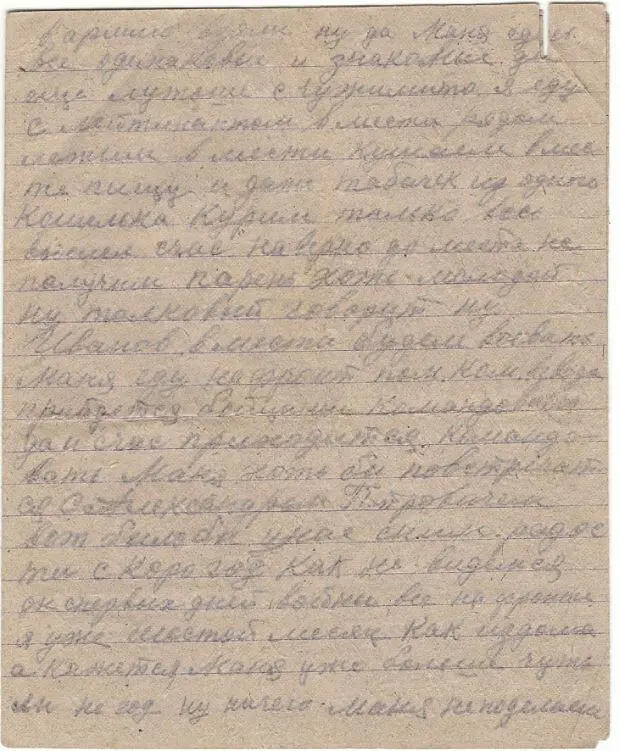 в армию взяли ну да Маня едем
все одинаковые и знакомые да
еще лутше с чужимито я еду
с лейтинантом вместа рядом
лежим вмести кушаем вмес
те пищу и даже табачек из одино
кошелька курим только весь
вышел счас наверно до места не
получим парень хоте молодой
ну толковый говорит ну
Иванов вместа будем воевать
Маня еду на фронт пом ком взвода
прийдется бойцами командовать
да и счас приходится командо
вать Маня хоть бы повстречат
ся с Александром Петровичем
вот былобы унас сним радос
ти скоро год как не виделся
он спервых дней войны все на фронте
я уже шостой месяц как издома
а кажется Маня уже больше чуть
ли не год ну ничего Маня неподелаеш